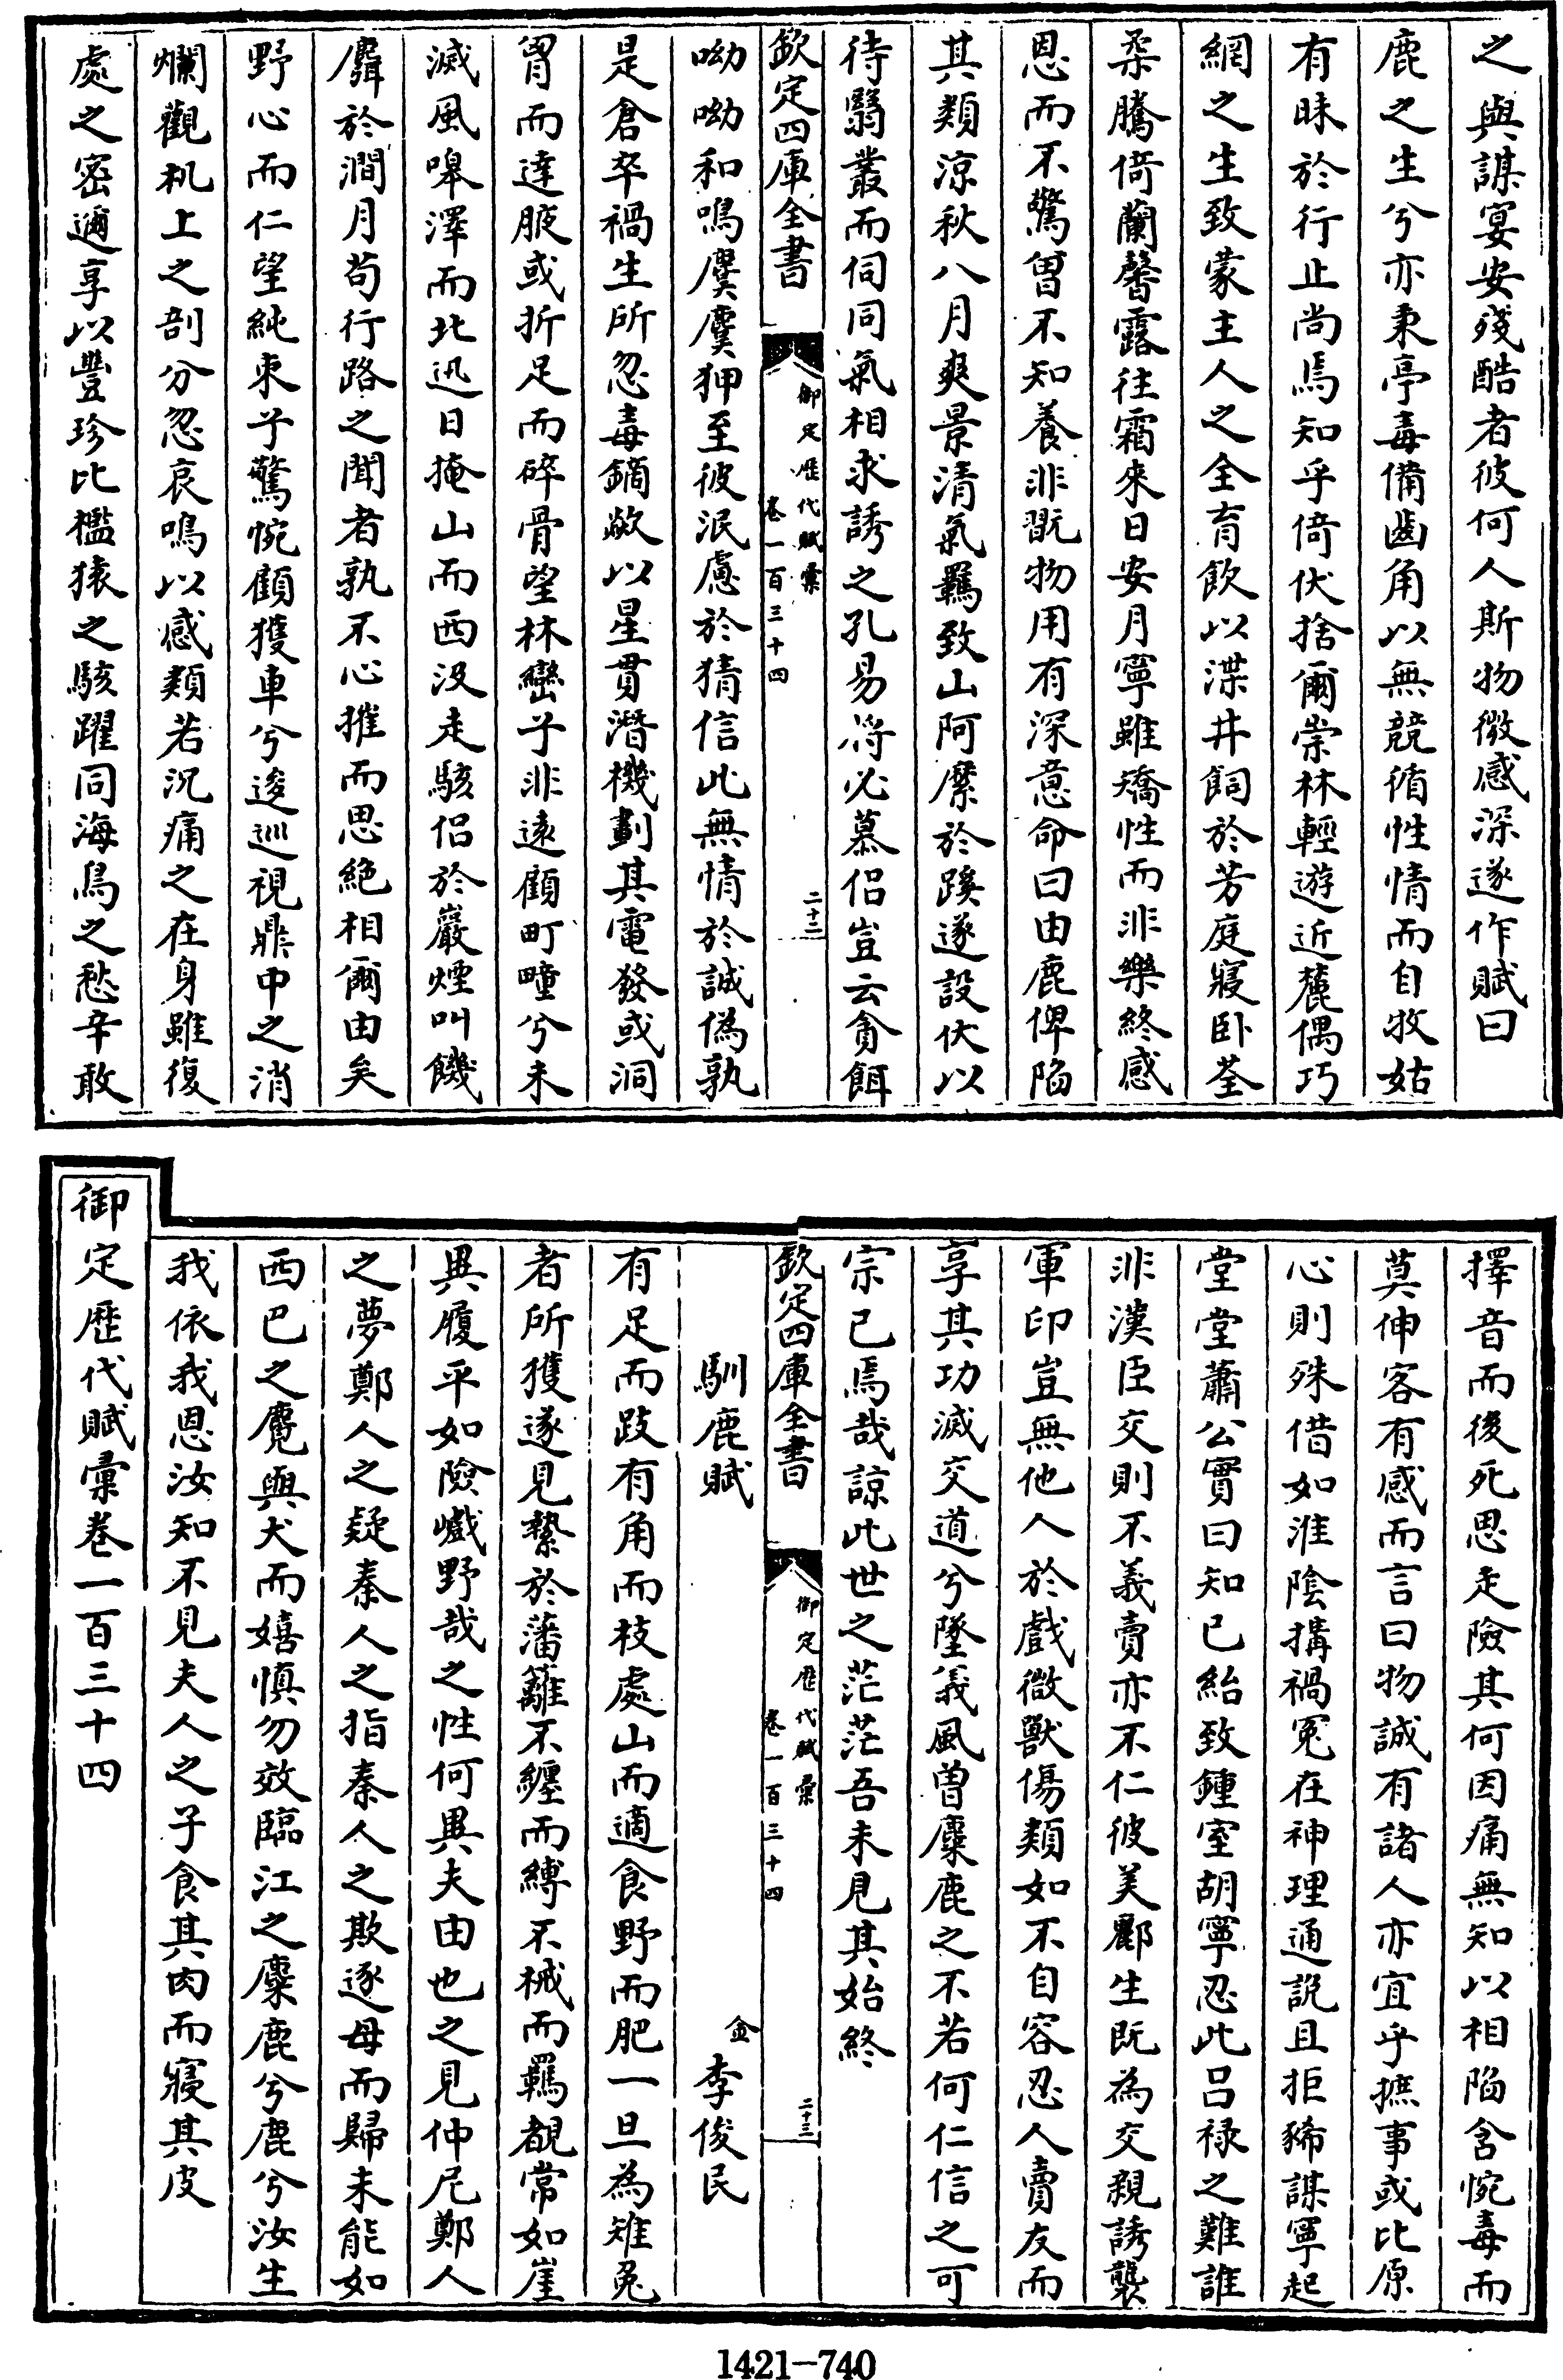 之與謀宴安殘酷者彼何人斯物微感深遂作賦曰
鹿之生兮亦秉亭毒備齒角以無競循性情而自牧姑
有昧於行止尚焉知乎倚伏捨爾崇林輕遊近麓偶巧
網之生致蒙主人之全育飲以渫井飼於芳庭寢卧荃
柔騰倚蘭馨露往霜來日安月寧雖矯性而非樂終感
恩而不驚曾不知養非翫物用有深意命曰由鹿俾陷
其類涼秋八月爽景清氣羈致山阿縻於蹊遂設伏以
待翳叢而伺同氣相求誘之孔易將必慕侶豈云貪餌
欽定四庫全書
御定歷代賦彙
卷一百三十四
二十三
呦呦和鳴麌麌狎至彼泯慮於猜信此無情於誠偽孰
是倉卒禍生所忽毒鏑歘以星貫潛機劃其電發或洞
胷而達腋或折足而碎骨望林巒乎非遠顧町疃兮未
滅風嘷澤而北迅日掩山而西沒走駭侶於巖煙叫饑
麛於澗月苟行路之聞者孰不心摧而思絕相爾由矣
野心而仁望純束乎驚惋顧獲車兮逡巡視鼎中之消
爛觀机上之剖分忽哀鳴以感類若沉痛之在身雖復
處之密邇享以豐珍比檻猿之駭躍同海鳥之愁辛敢
擇音而後死思走險其何因痛無知以相陷含惋毒而
莫伸客有感而言曰物誠有諸人亦宜乎摭事或比原
心則殊借如淮陰搆禍冤在神理通說且拒豨謀寧起
堂堂蕭公實曰知已紿致鍾室胡寧忍此呂禄之難誰
非漢臣交則不義賣亦不仁彼美酈生既為交親誘襲
軍印豈無他人於戲微獸傷類如不自容忍人賣友而
享其功滅交道兮墜義風曽麋鹿之不若何仁信之可
宗已焉哉諒此世之茫茫吾未見其始終
欽定四庫全書
御定歷代賦彙
卷一百三十四
二十三
馴鹿賦
金李俊民
有足而跂有角而枝處山而適食野而肥一旦為雉兎
者所獲遂見縶於藩籬不纏而縛不械而羈覩常如崖
異履平如險巇野哉之性何異夫由也之見仲尼鄭人
之夢鄭人之疑秦人之指秦人之欺逐母而歸未能如
西巴之麑與犬而嬉慎勿效臨江之麋鹿兮鹿兮汝生
我依我恩汝知不見夫人之子食其肉而寢其皮
御定歷代賦彙卷一百三十四
1421-740